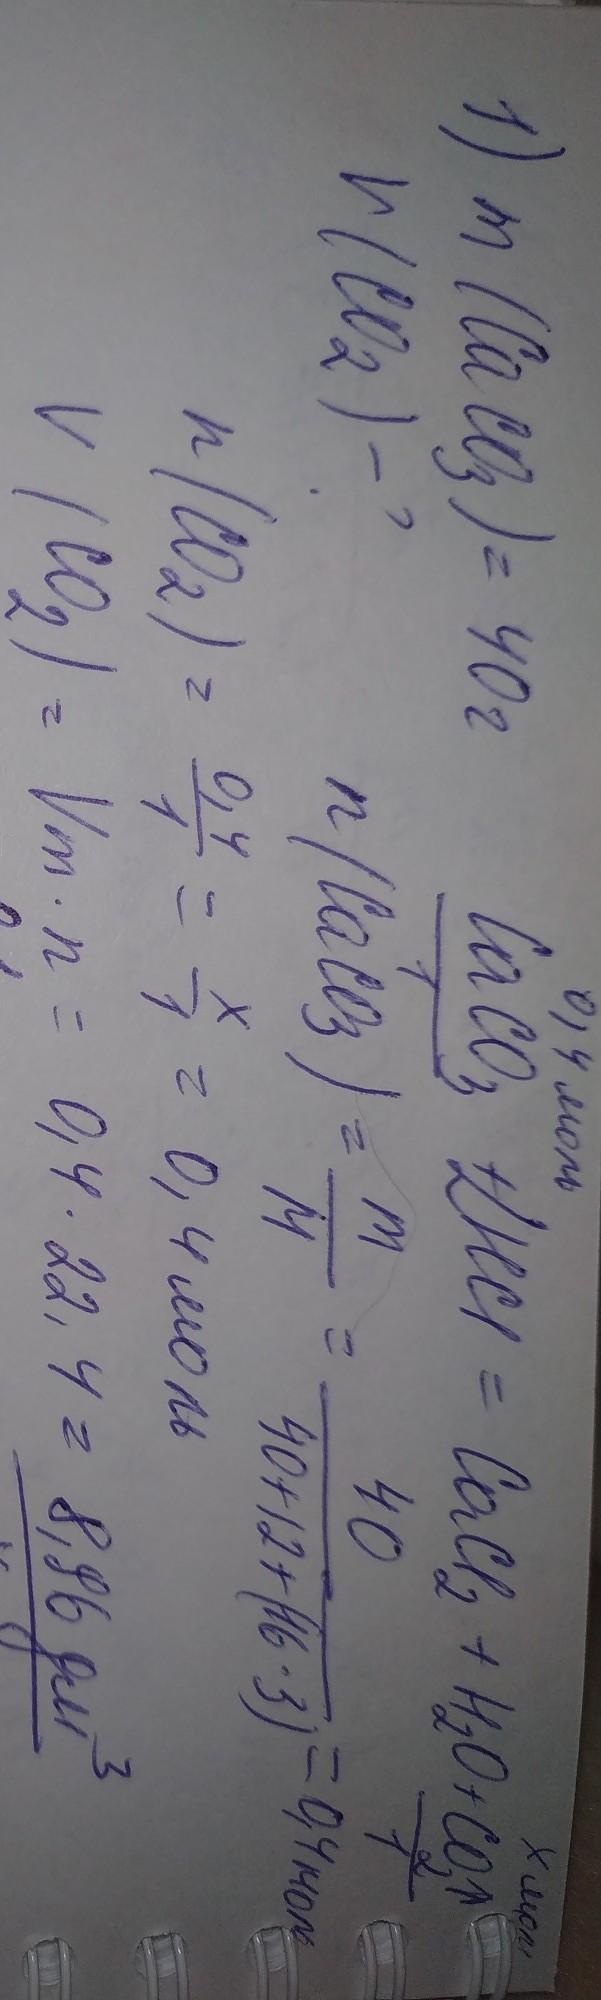 1) m(CaCO3) = 40г
V(CO2) - ?
0,4 моль
x моль
CaCO3 + 2HCl = CaCl2 + H2O + CO2↑
1
1
n(CaCO3) = m/M = 40/40+12+(16·3) = 0,4 моль
n(CO2) = 0,4/1 = x/1 = 0,4 моль
V(CO2) = Vm·n = 0,4·22,4 = 8,96 дм³